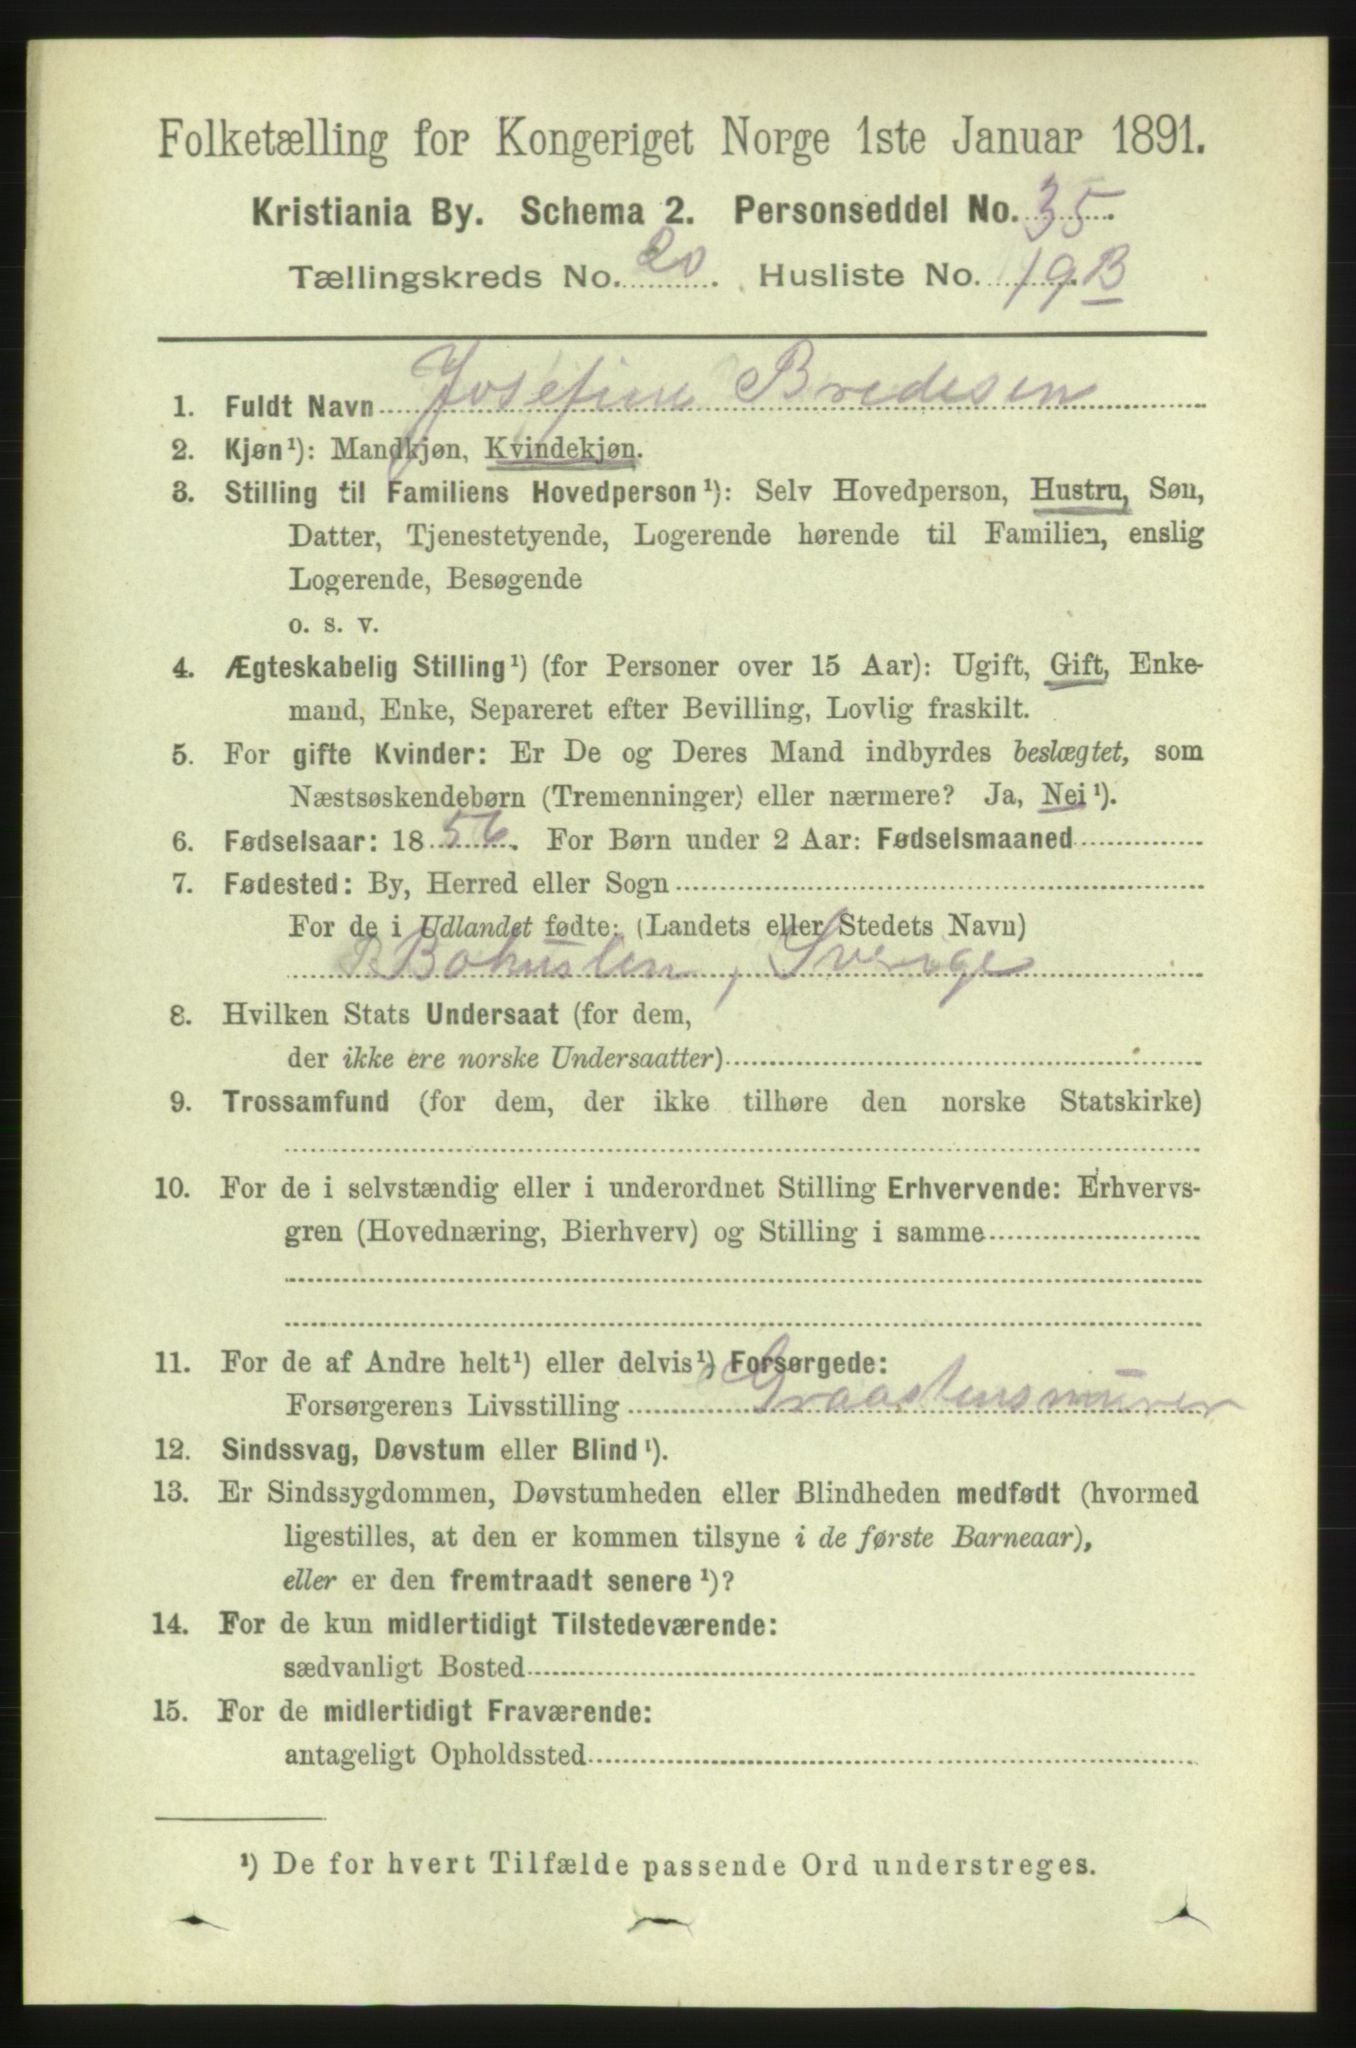 Folketælling for Kongeriget Norge 1ste Januar 1891.
Kristiania By. Schema 2. Personseddel No. 35.
Tællingskreds No. 20. Husliste No. 19.B
1. Fuldt Navn Josefine Bredesen
2. Kjøn¹): Mandkjøn, Kvindekjøn.
3. Stilling til Familiens Hovedperson¹): Selv Hovedperson, Hustru, Søn,
Datter, Tjenestetyende, Logerende hørende til Familien, enslig
Logerende, Besøgende
o. s. v.
4. Ægteskabelig Stilling¹) (for Personer over 15 Aar): Ugift, Gift, Enke-
mand, Enke, Separeret efter Bevilling, Lovlig fraskilt.
5. For gifte Kvinder: Er De og Deres Mand indbyrdes beslægtet, som
Næstsøskendebørn (Tremenninger) eller nærmere? Ja, Nei¹).
6. Fødselsaar: 1856. For Børn under 2 Aar: Fødselsmaaned
7. Fødested: By, Herred eller Sogn
For de i Udlandet fødte: (Landets eller Stedets Navn)
B Bohuslen, Sverige
8. Hvilken Stats Undersaat (for dem,
der ikke ere norske Undersaatter)
9. Trossamfund (for dem, der ikke tilhøre den norske Statskirke)
10. For de i selvstændig eller i underordnet Stilling Erhvervende: Erhvervs-
gren (Hovednæring, Bierhverv) og Stilling i samme
11. For de af Andre helt¹) eller delvis¹) Forsørgede:
Forsørgerens Livsstilling Graastensmurer
12. Sindssvag, Døvstum eller Blind¹).
13. Er Sindssygdommen, Døvstumheden eller Blindheden medfødt (hvormed
ligestilles, at den er kommen tilsyne i de første Barneaar),
eller er den fremtraadt senere¹)?
14. For de kun midlertidigt Tilstedeværende:
sædvanligt Bosted
15. For de midlertidigt Fraværende:
antageligt Opholdssted
¹) De for hvert Tilfælde passende Ord understreges.